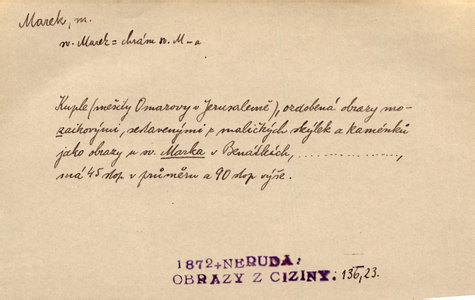 Marek, m.
sv. Marek = chrám sv. M-a
Kuple (mešity Omarovy v Jerusalemě), ozdobená obrazy mo-
zaikovými, sestavenými z maličkých sklýlek a kaménků
jako obrazy u sv. Marka v Benátkách, ..................,
má 45 stop v průměru a 90 stop výše.
1872+NERUDA:
OBRAZY Z CIZINY. 136,23.